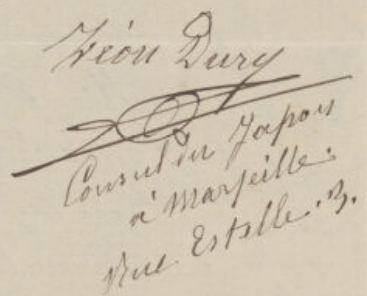 Léon Dury
Consul du Japon
à Marseille.
Rue Estelle. 3.